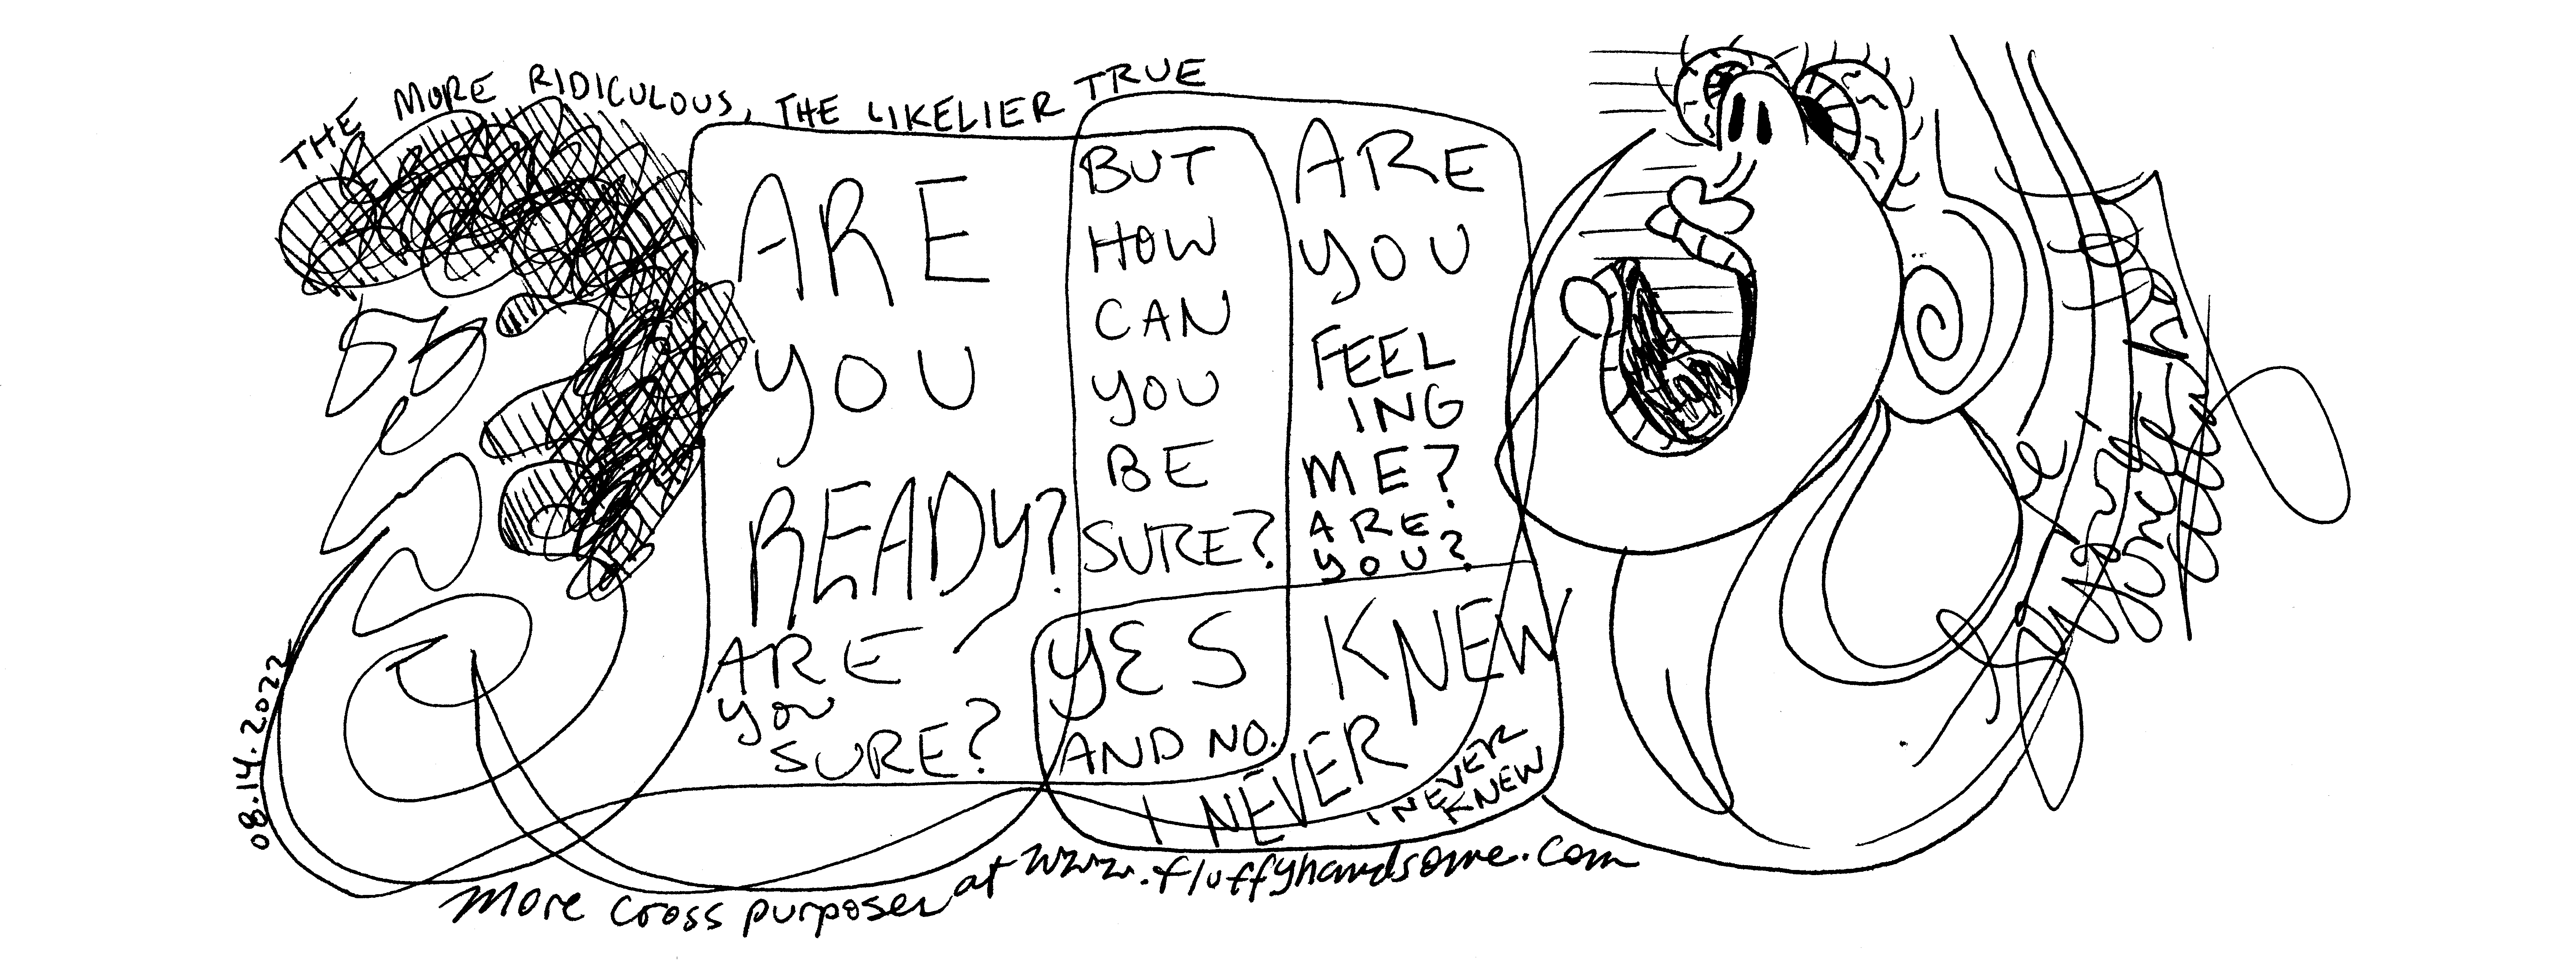 THE MORE RIDICULOUS, THE LIKELIER TRUE
ARE
YOU
READY?
ARE
YOU
SURE?
BUT
HOW
CAN
YOU
BE
SURE?
ARE
YOU
FEEL
ING
ME?
ARE
YOU?
YES
AND NO.
I NEVER
KNEW
I NEVER
KNEW
08.14.2022
more cross purposes at www.fluffyhandsome.com